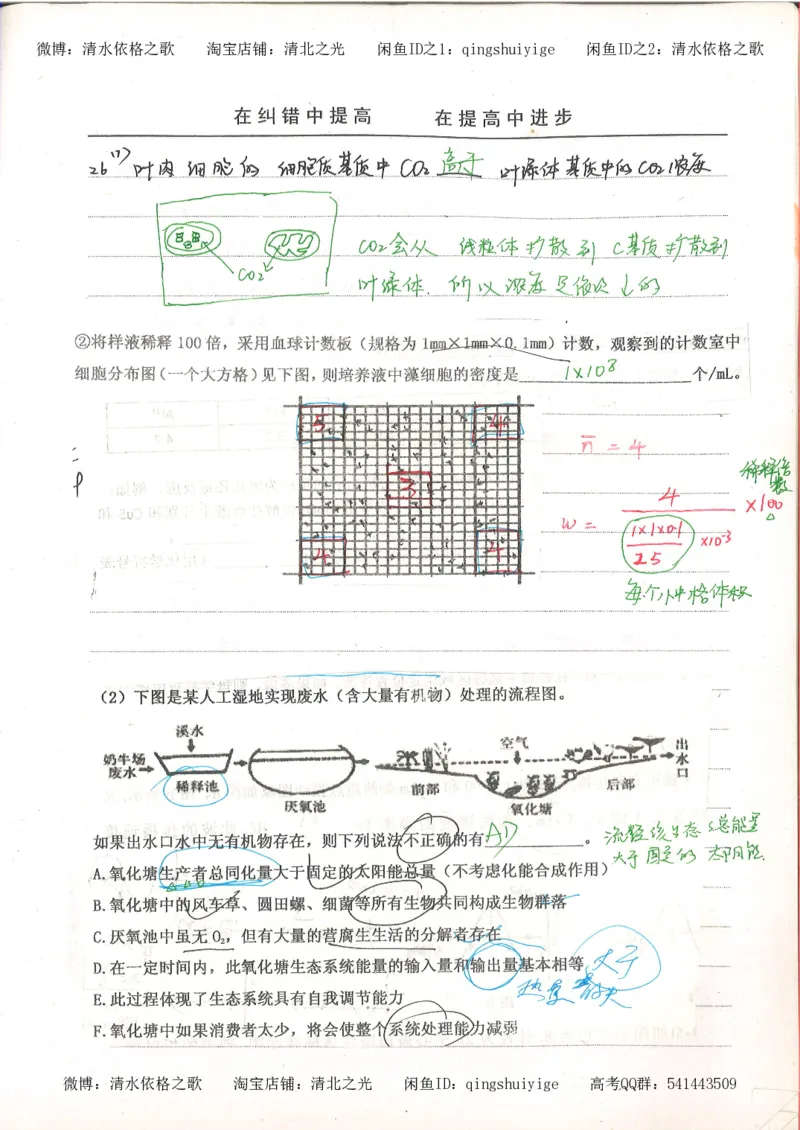 微博：清水依格之歌 淘宝店铺：清北之光 闲鱼ID之1：qingshuiyige 闲鱼ID之2：清水依格之歌
在纠错中提高 在提高中进步
26 (7) 叶肉细胞的 细胞质基质中 CO2 高于 叶绿体基质中的CO2浓度
CO2会从 线粒体扩散到 C基质扩散到
CO2
叶绿体. 所以浓度是依次↓的
②将样液稀释 100 倍，采用血球计数板（规格为 1mm×1mm×0.1mm）计数，观察到的计数室中
细胞分布图(一个大方格)见下图,则培养液中藻细胞的密度是 1×10⁸ 个/mL。
5 4
3
4 4
n̄ = 4
稀释倍数
w = 4 / (1×1×0.1 / 25 ×10⁻³) ×100
每个小中格体积
（2）下图是某人工湿地实现废水（含大量有机物）处理的流程图。
溪水
奶牛场
废水
稀释池
厌氧池
前部
空气
氧化塘
后部
出水口
如果出水口水中无有机物存在，则下列说法不正确的有 AD 。
流经该生态s总能量
大于固定的 太阳能.
A.氧化塘生产者总同化量大于固定的太阳能总量（不考虑化能合成作用）
B.氧化塘中的风车草、圆田螺、细菌等所有生物共同构成生物群落
C.厌氧池中虽无 O₂，但有大量的营腐生生活的分解者存在
D.在一定时间内，此氧化塘生态系统能量的输入量和输出量基本相等
大于
热量 散失
E.此过程体现了生态系统具有自我调节能力
F.氧化塘中如果消费者太少，将会使整个系统处理能力减弱
微博：清水依格之歌 淘宝店铺：清北之光 闲鱼ID：qingshuiyige 高考QQ群：541443509